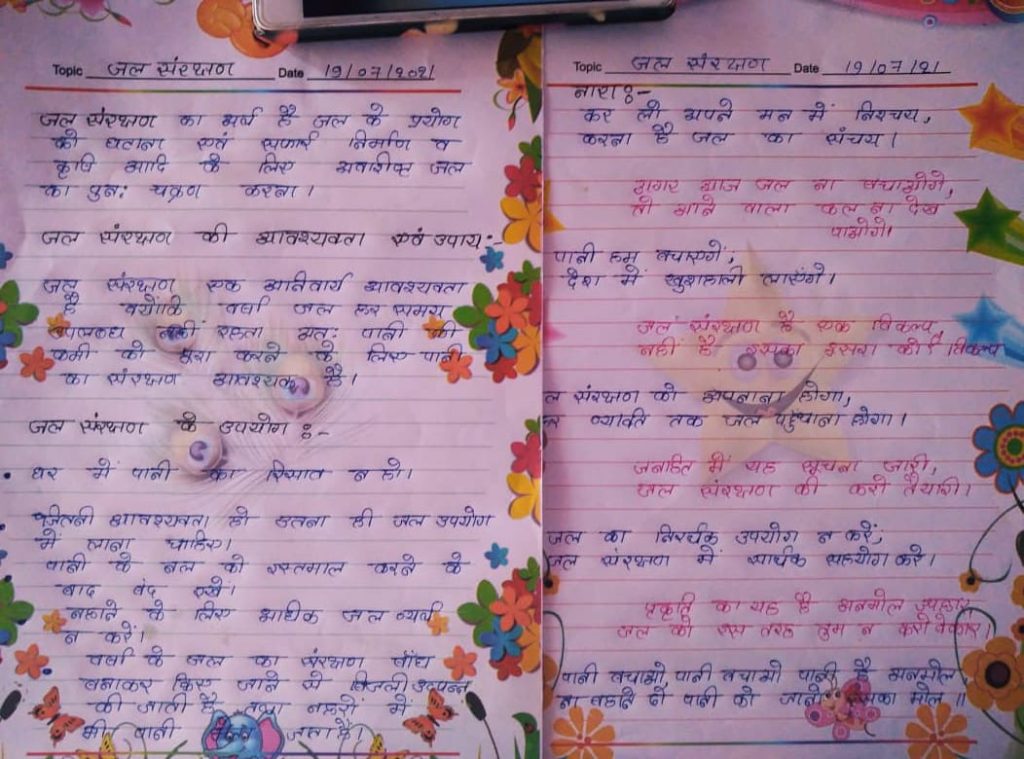 Topic जल संरक्षण Date 19/07/2021
जल संरक्षण का अर्थ है जल के प्रयोग
को घटाना एवं सफाई निर्माण व
कृषि आदि के लिए अवशिष्ट जल
का पुन: चक्रण करना।
जल संरक्षण की आवश्यकता एवं उपाय:-
जल संरक्षण एक अनिवार्य आवश्यकता
है क्योंकि वर्षा जल हर समय
उपलब्ध नहीं रहता अत: पानी की
कमी को पूरा करने के लिए पानी
का संरक्षण आवश्यक है।
जल संरक्षण के उपयोग :-
• घर में पानी का रिसाव न हो।
जितनी आवश्यकता हो उतना ही जल उपयोग
में लाना चाहिए।
पानी के नल को इस्तमाल करने के
बाद बंद रखें।
नहाने के लिए अधिक जल व्यर्थ
न करें।
वर्षा के जल का संरक्षण बाँध
बनाकर किए जाने से बिजली उत्पन्न
की जाती है तथा नहरों में
भी पानी जाता है।
Topic जल संरक्षण Date 19/07/21
नारा:-
कर लो अपने मन में निश्चय,
करना है जल का संचय।
अगर आज जल ना बचाओगे,
तो आने वाला कल ना देख
पाओगे।
पानी हम बचाएंगें,
देश में खुशहाली लाएंगे।
जल संरक्षण है एक विकल्प
नहीं है इसका दूसरा कोई विकल्प
ल संरक्षण को अपनाना होगा,
र व्यक्ति तक जल पहुंचाना होगा।
जनहित में यह सूचना जारी,
जल संरक्षण की करो तैयारी।
जल का निरर्थक उपयोग न करें,
जल संरक्षण में सार्थक सहयोग करे।
प्रकृति का यह है अनमोल उपहार
जल को इस तरह तुम न करो बेकार।
पानी बचाओ, पानी बचाओ पानी है अनमोल
ना बहाने दो पानी को जाने इसका मोल॥